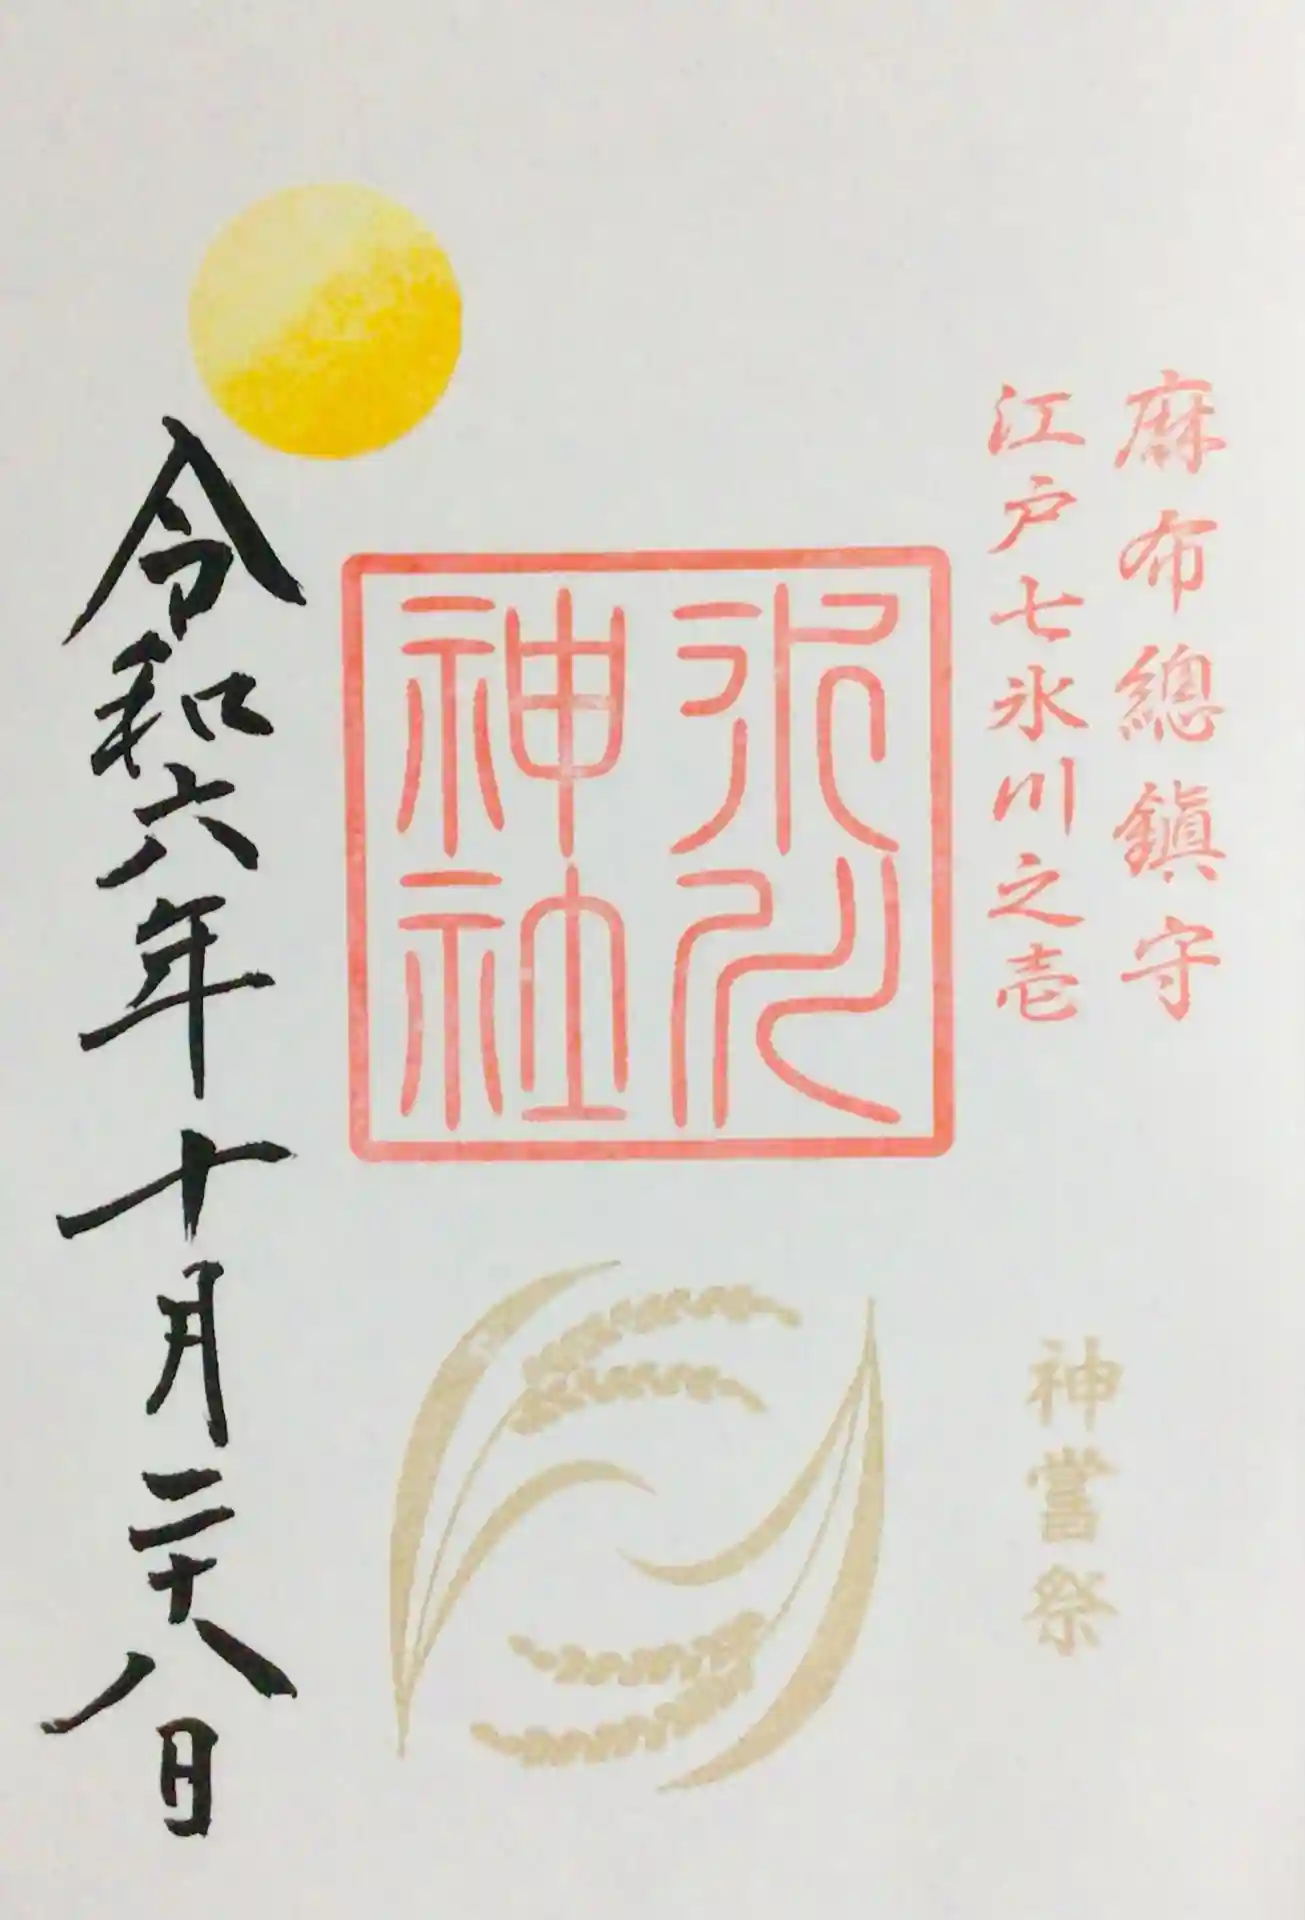 麻布總鎭守
江戸七氷川之壱
氷川
神社
神嘗祭
令和六年十月二十八日